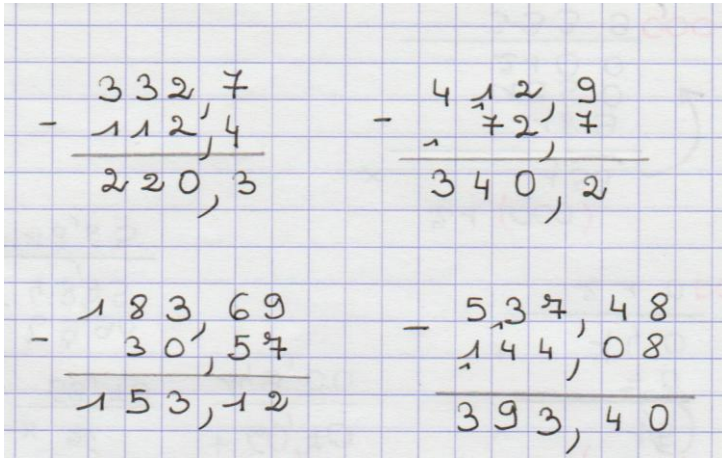 332,7
- 112,4
220,3
412,9
- 72,7
340,2
183,69
- 30,57
153,12
537,48
- 144,08
393,40